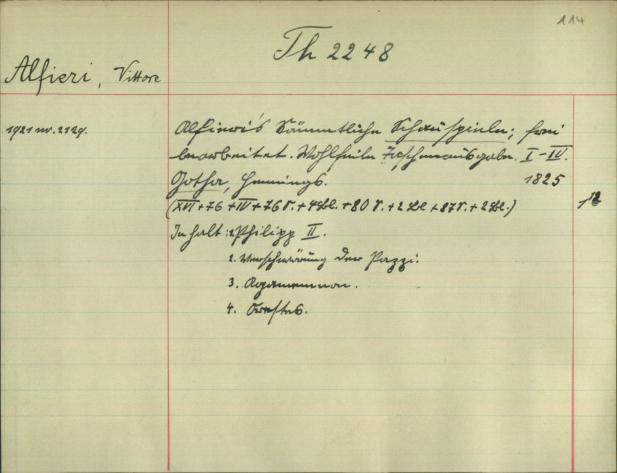 114
Th 2248
Alfieri, Vittore
1921 nr. 2129.
Alfieri's Sämmtliche Schauspiele; frei
bearbeitet. Wohlfeile Taschenausgabe. I-IV.
Gotha, Hennings. 1825
(XVI+76+IV+76 S.+4 Bl.+80 S.+2 Bl.+87 S.+2 Bl.)
Inhalt: 1. Philipp II.
2. Verschwörung der Pazzi.
3. Agamemnon.
4. Orestes.